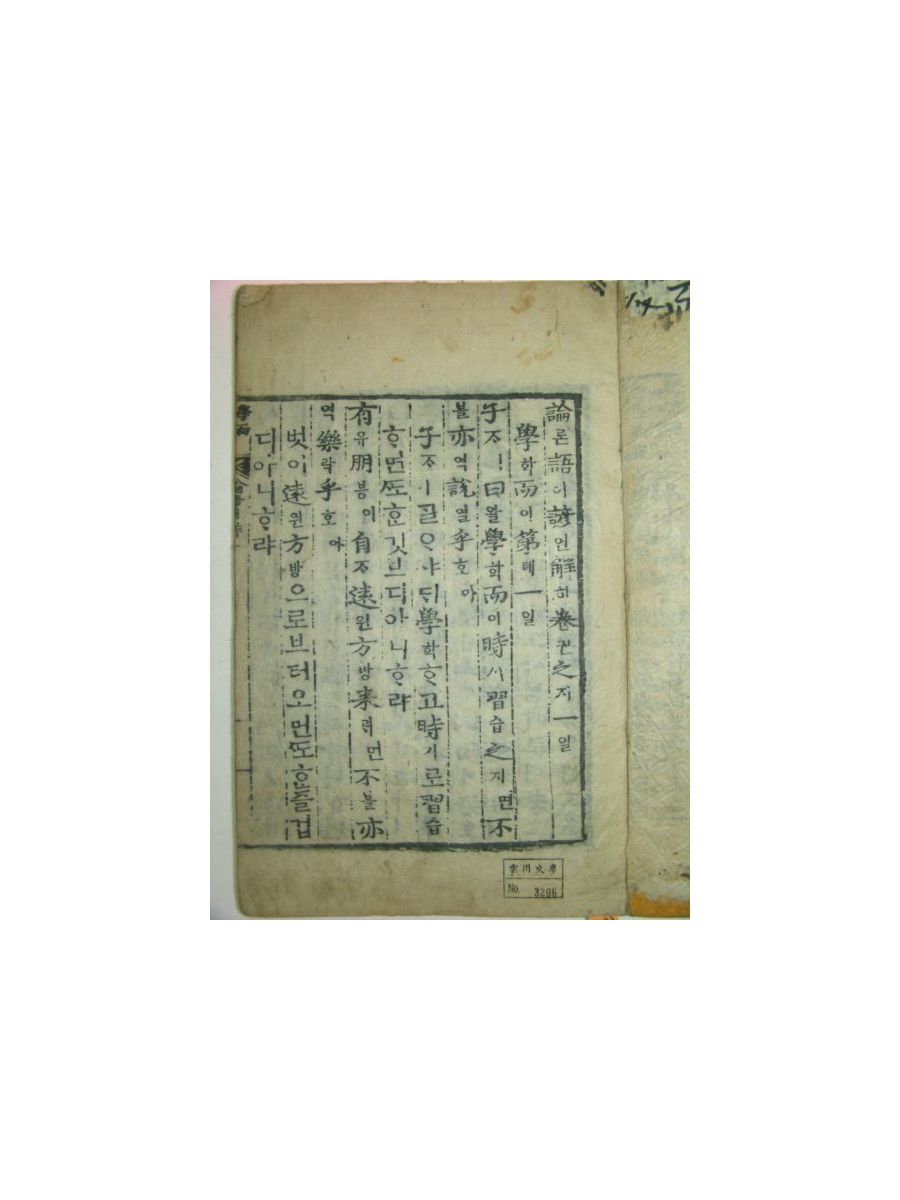 論론語어諺언解ᄒᆡ卷권之지一일
學학而이第뎨一일
子ᄌᆞㅣ曰왈學학而이時시習습之지면不
블亦역說열乎호아
子ᄌᆞㅣᄀᆞᆯᄋᆞ샤ᄃᆡ學학ᄒᆞ고時시로習습
ᄒᆞ면ᄯᅩᄒᆞᆫ깃브디아니ᄒᆞ랴
有유朋븡이自ᄌᆞ遠원方방來ᄅᆡ면不블亦
역樂락乎호아
벗이遠원方방으로브터오면ᄯᅩᄒᆞᆫ즐겁
디아니ᄒᆞ랴
文庫
No. 3206